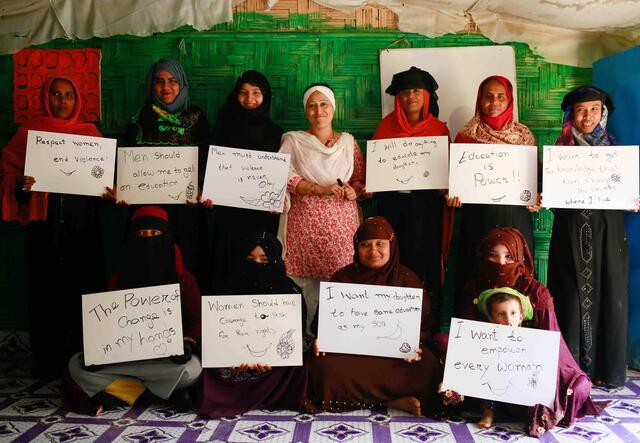 Respect women,
end Violence!
Men Should
allow me to get
an education
Men must understand
that violence
is never
Okay
I will do anything
to educate my
daughters.
Education is
Power!!
I want to get
the knowledge that
Can Change
the society
where I live
The Power of
Change is
in my hands
Women Should have
Courage to ask
for their rights
I want my daughters
to have same education
as my son
I want to
empower
every woman